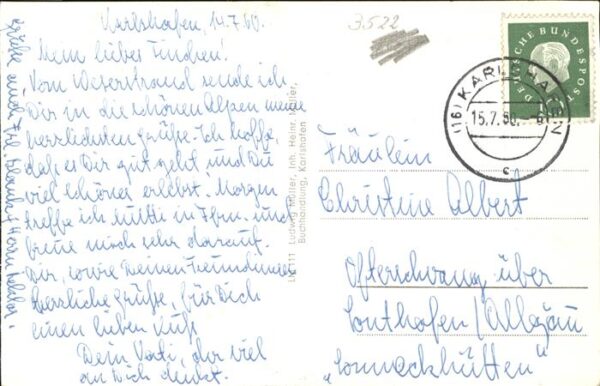 Karlshafen, 14.7.60.
Mein liebes
Vom Weserstrand sende ich
Dir in die schönen Alpen meine
herzlichsten Grüße. Ich hoffe,
daß es Dir gut geht und Du
viel Schönes erlebst. Morgen
treffe ich Mutti in und
freue mich sehr darauf.
Dir, sowie Deinen Freundinnen
herzliche Grüße, für Dich
einen lieben Kuß
Dein Vati, der viel
an Dich denkt.
Grüße auch Frl. Herrn
L 111 Ludwig Müller, Inh. Heinz Müller,
Buchhandlung, Karlshafen
3522
DEUTSCHE BUNDESPOST
(16) KARLSHAFEN
15.7.60.
c
Fräulein
Christine Albert
Ofterschwang über
Sonthofen/Allgäu
„Sonnackhütten"